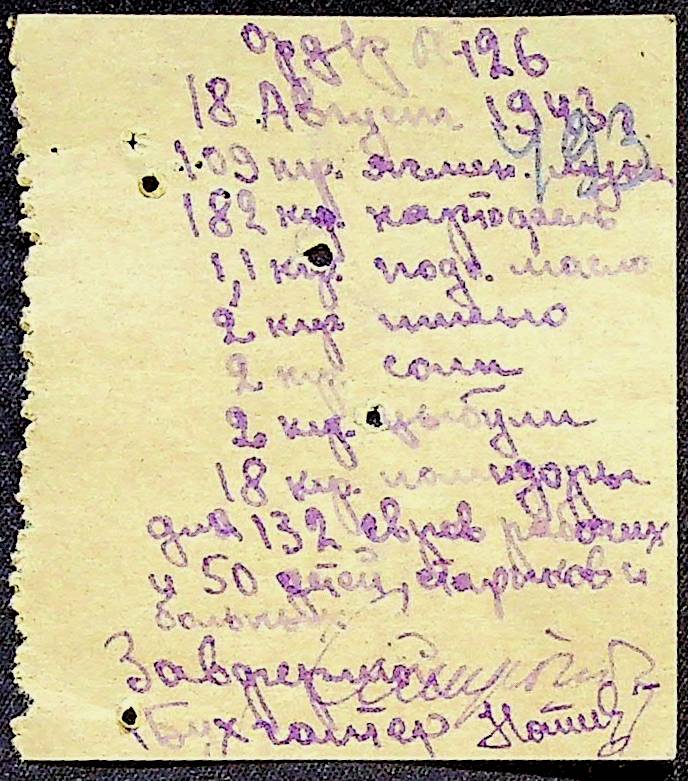 Ордер № 126
18 Август 1943
109 кгр. ячмен. муки
182 кгр. картофель
1,1 кгр. подс. масло
2 кгр пшено
2 кгр. соли
2 кгр. цыбули
18 кгр. помидоры
для 132 евреев рабочих
и 50 детей, стариков и
больных
Зав
Бухгалтер